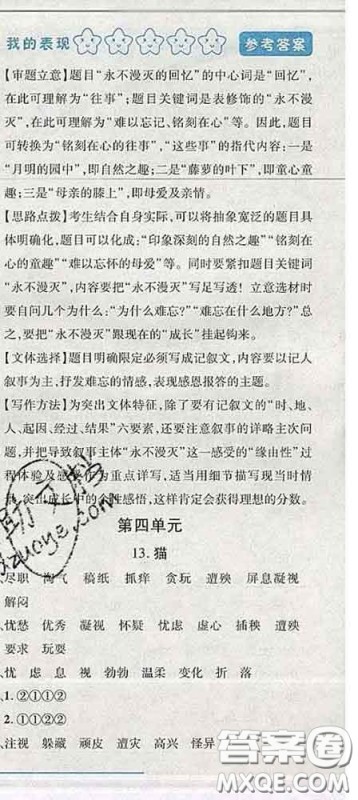 我的表现 参考答案
【审题立意】题目“永不漫灭的回忆”的中心词是“回忆”，
在此可理解为“往事”；题目关键词是表修饰的“永不漫
灭”，在此可理解为“难以忘记、铭刻在心”等。因此，题目
可转换为“铭刻在心的往事”，“这些事”的指代内容：一是
“月明的园中”，即自然之趣；二是“藤萝的叶下”，即童心童
趣；三是“母亲的膝上”，即母爱及亲情。
【思路点拨】考生结合自身实际，可以将抽象宽泛的题目具
体明确化，题目可以化成：“印象深刻的自然之趣”“铭刻在
心的童趣”“难以忘怀的母爱”等。同时要紧扣题目关键词
“永不漫灭”，内容要把“永不漫灭”写足写透！立意选材时
要自问几个为什么：“为什么难忘？”“难忘在什么地方？”总
之，要把“永不漫灭”跟现在的“成长”挂起钩来。
【文体选择】题目明确限定必须写成记叙文，内容要以记人
叙事为主，抒发难忘的情感，表现感恩报答的主题。
【写作方法】为突出文体特征，除了要有记叙文的“时、地、
人、起因、经过、结果”六要素，还要注意叙事的详略主次问
题，并把导致叙事主体“永不漫灭”这一感受的“缘由性”过
程体验及感 作为重点详写，适当用细节描写表现当时情
景，突出成长中的 性感悟，这样肯定会获得理想的分数。
第四单元
13.猫
尽职 淘气 稿纸 抓痒 贪玩 遭殃 屏息凝视
解闷
忧愁 优秀 凝视 怀疑 忧虑 虚心 插秧 遭殃
要求 玩耍
忧 虑 息 视 勃勃 温柔 变化 折 落
1.②①①②
2.①①②②
注视 躲藏 顽皮 遭灾 高兴 怪异
zuoye
答案圈
MXQE.COM